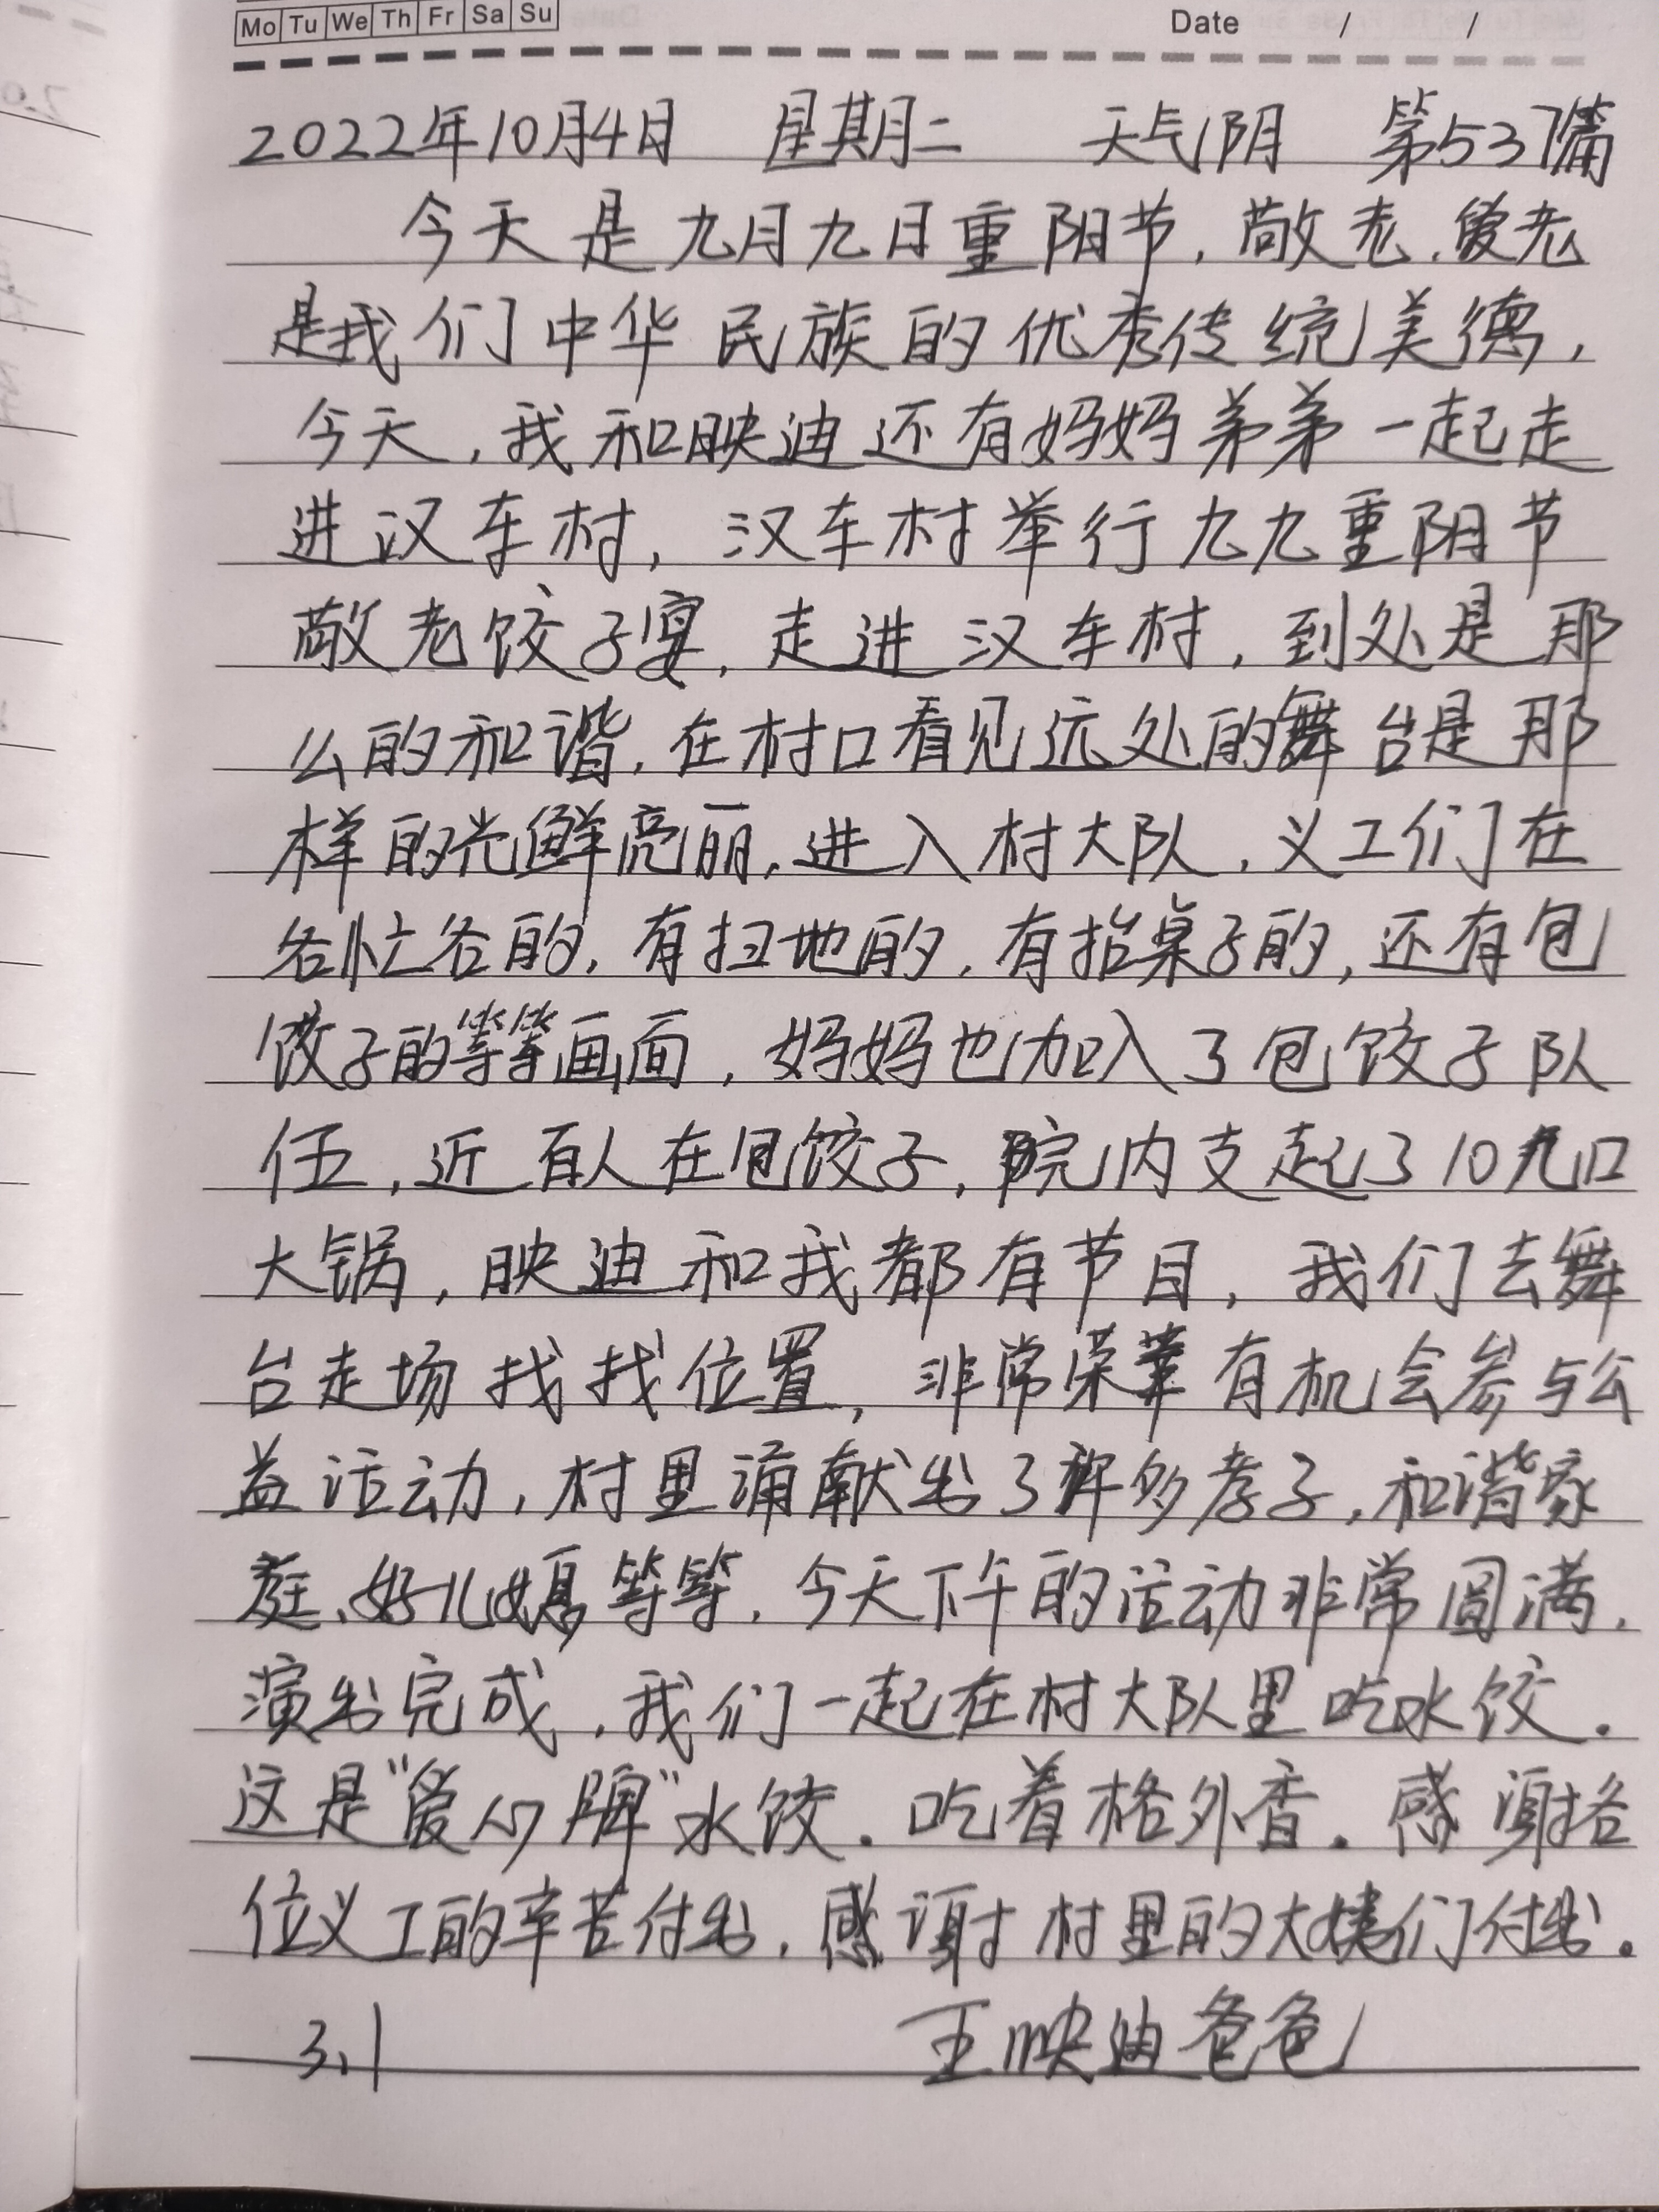 Mo Tu We Th Fr Sa Su Date / /
2022年10月4日 星期二 天气阴 第537篇
今天是九月九日重阳节,敬老,爱老
是我们中华民族的优秀传统美德,
今天,我和映迪还有妈妈弟弟一起走
进汉车村,汉车村举行九九重阳节
敬老饺子宴,走进汉车村,到处是那
么的和谐,在村口看见远处的舞台是那
样的光鲜亮丽,进入村大队,义工们在
各忙各的,有扫地的,有抬桌子的,还有包
饺子的等等画面,妈妈也加入了包饺子队
伍,近百人在包饺子,院内支起了10几口
大锅,映迪和我都有节目,我们去舞
台走场找找位置,非常荣幸有机会参与公
益活动,村里涌献出了许多孝子,和谐家
庭、好儿媳等等,今天下午的活动非常圆满,
演出完成,我们一起在村大队里吃水饺.
这是"爱心牌"水饺.吃着格外香.感谢各
位义工的辛苦付出,感谢村里的大姨们付出.
3.1 王映迪爸爸